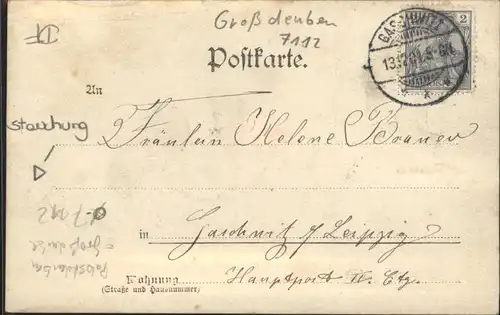 Großdeuben
7112
GASCHWITZ
2
13.12.01.5-6N.
Postkarte.
An
Stauchung
Fräulein Helene Brauer
Ø-7112
= Großdeuben
in Gaschwitz / Leipzig
Wohnung Hauptpost
(Straße und Hausnummer)